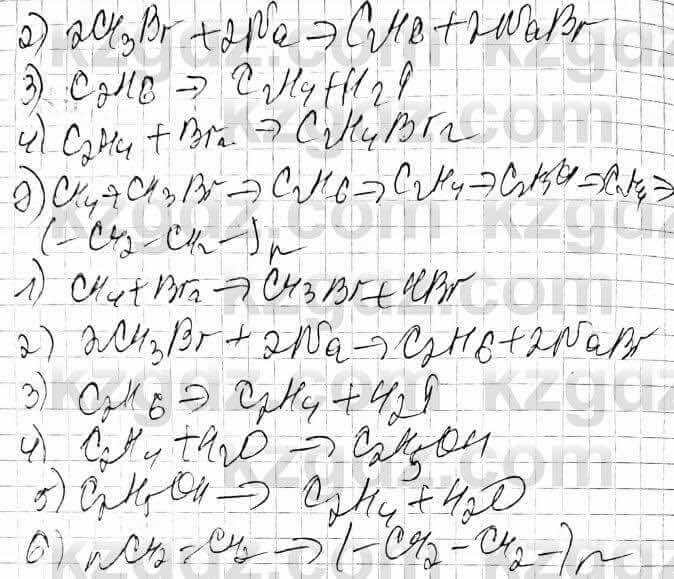 2) 2CH3Br + 2Na → C2H6 + 2NaBr
3) C2H6 → C2H4 + H2↑
4) C2H4 + Br2 → C2H4Br2
2) CH4 → CH3Br → C2H6 → C2H4 → C2H5OH → C2H4 →
(-CH2-CH2-)n
1) CH4 + Br2 → CH3Br + HBr
2) 2CH3Br + 2Na → C2H6 + 2NaBr
3) C2H6 → C2H4 + H2↑
4) C2H4 + H2O → C2H5OH
5) C2H5OH → C2H4 + H2O
6) nCH2=CH2 → (-CH2-CH2-)n
kzgdz.com